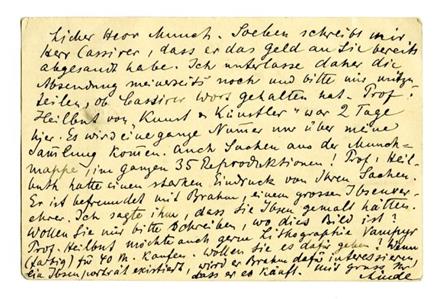 Lieber Herr Munch. Soeben schreibt mir
Herr Cassirer, dass er das Geld an Sie bereits
abgesandt habe. Ich unterlasse daher die
Absendung meinerseits noch und bitte mir mitzu-
teilen, ob Cassirer Wort gehalten hat. Prof.
Heilbut von „Kunst u Künstler“ war 2 Tage
hier. Es wird eine ganze Numer nur über meine
Samlung komen. Auch Sachen aus der Munch-
mappe, im ganzen 35 Reproduktionen! Prof. Heil-
buth hatte einen starken Eindruck von Ihren Sachen.
Er ist befreundet mit Brahm, einem grossen Ibsenver-
ehrer. Ich sagte ihm, dass Sie Ibsen gemalt hätten.
Wollen Sie mir bitte schreiben, wo dies Bild ist?
Prof. Heilbut möchte auch gerne Lithographie Vampyr
(farbig) für 40 M. kaufen. Wollen Sie es dafür geben? Wenn
ein Ibsenporträt existiert, wird er Brahm dafür interessieren,
dass er es kauft. Mit Gruss Ihr
Linde